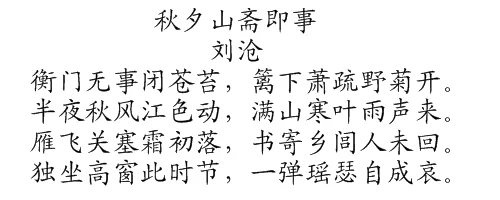 秋夕山斋即事
刘沧
衡门无事闭苍苔，篱下萧疏野菊开。
半夜秋风江色动，满山寒叶雨声来。
雁飞关塞霜初落，书寄乡闾人未回。
独坐高窗此时节，一弹瑶瑟自成哀。